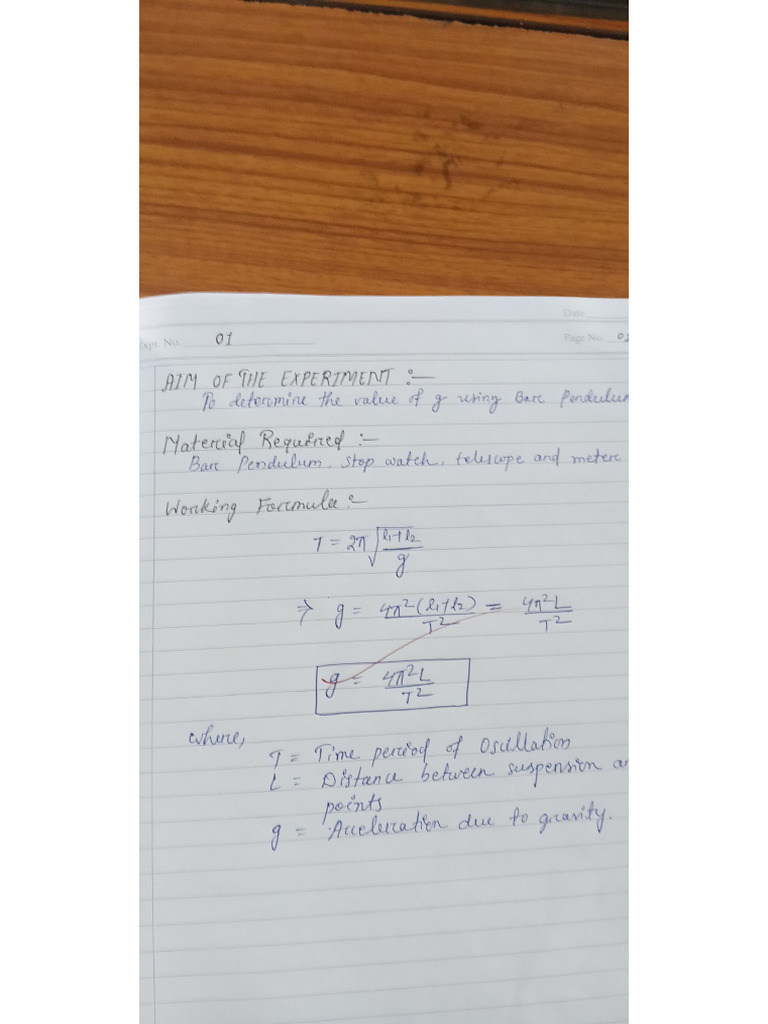 Date
Expt. No. 01
Page No. 01
AIM OF THE EXPERIMENT :-
To determine the value of g using Bar Pendulum
Material Required :-
Bar Pendulum, Stop watch, telescope and meter
Working Formula :-
T = 2π√((l₁+l₂)/g)
⇒ g = 4π²(l₁+l₂)/T² = 4π²L/T²
g = 4π²L/T²
where,
T = Time period of Oscillation
L = Distance between suspension
points
g = Acceleration due to gravity.